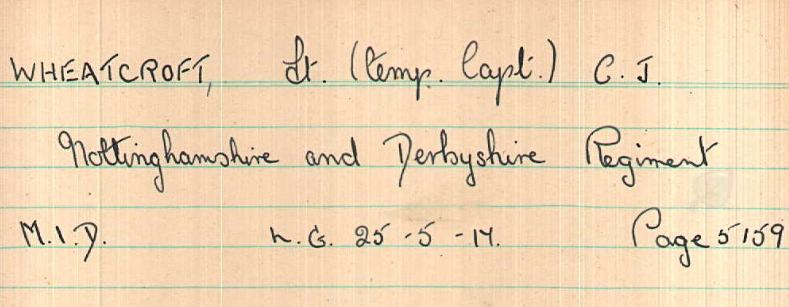 WHEATCROFT, Lt. (temp. Capt.) C. J.
Nottinghamshire and Derbyshire Regiment
M.I.D. L.G. 25-5-17. Page 5159